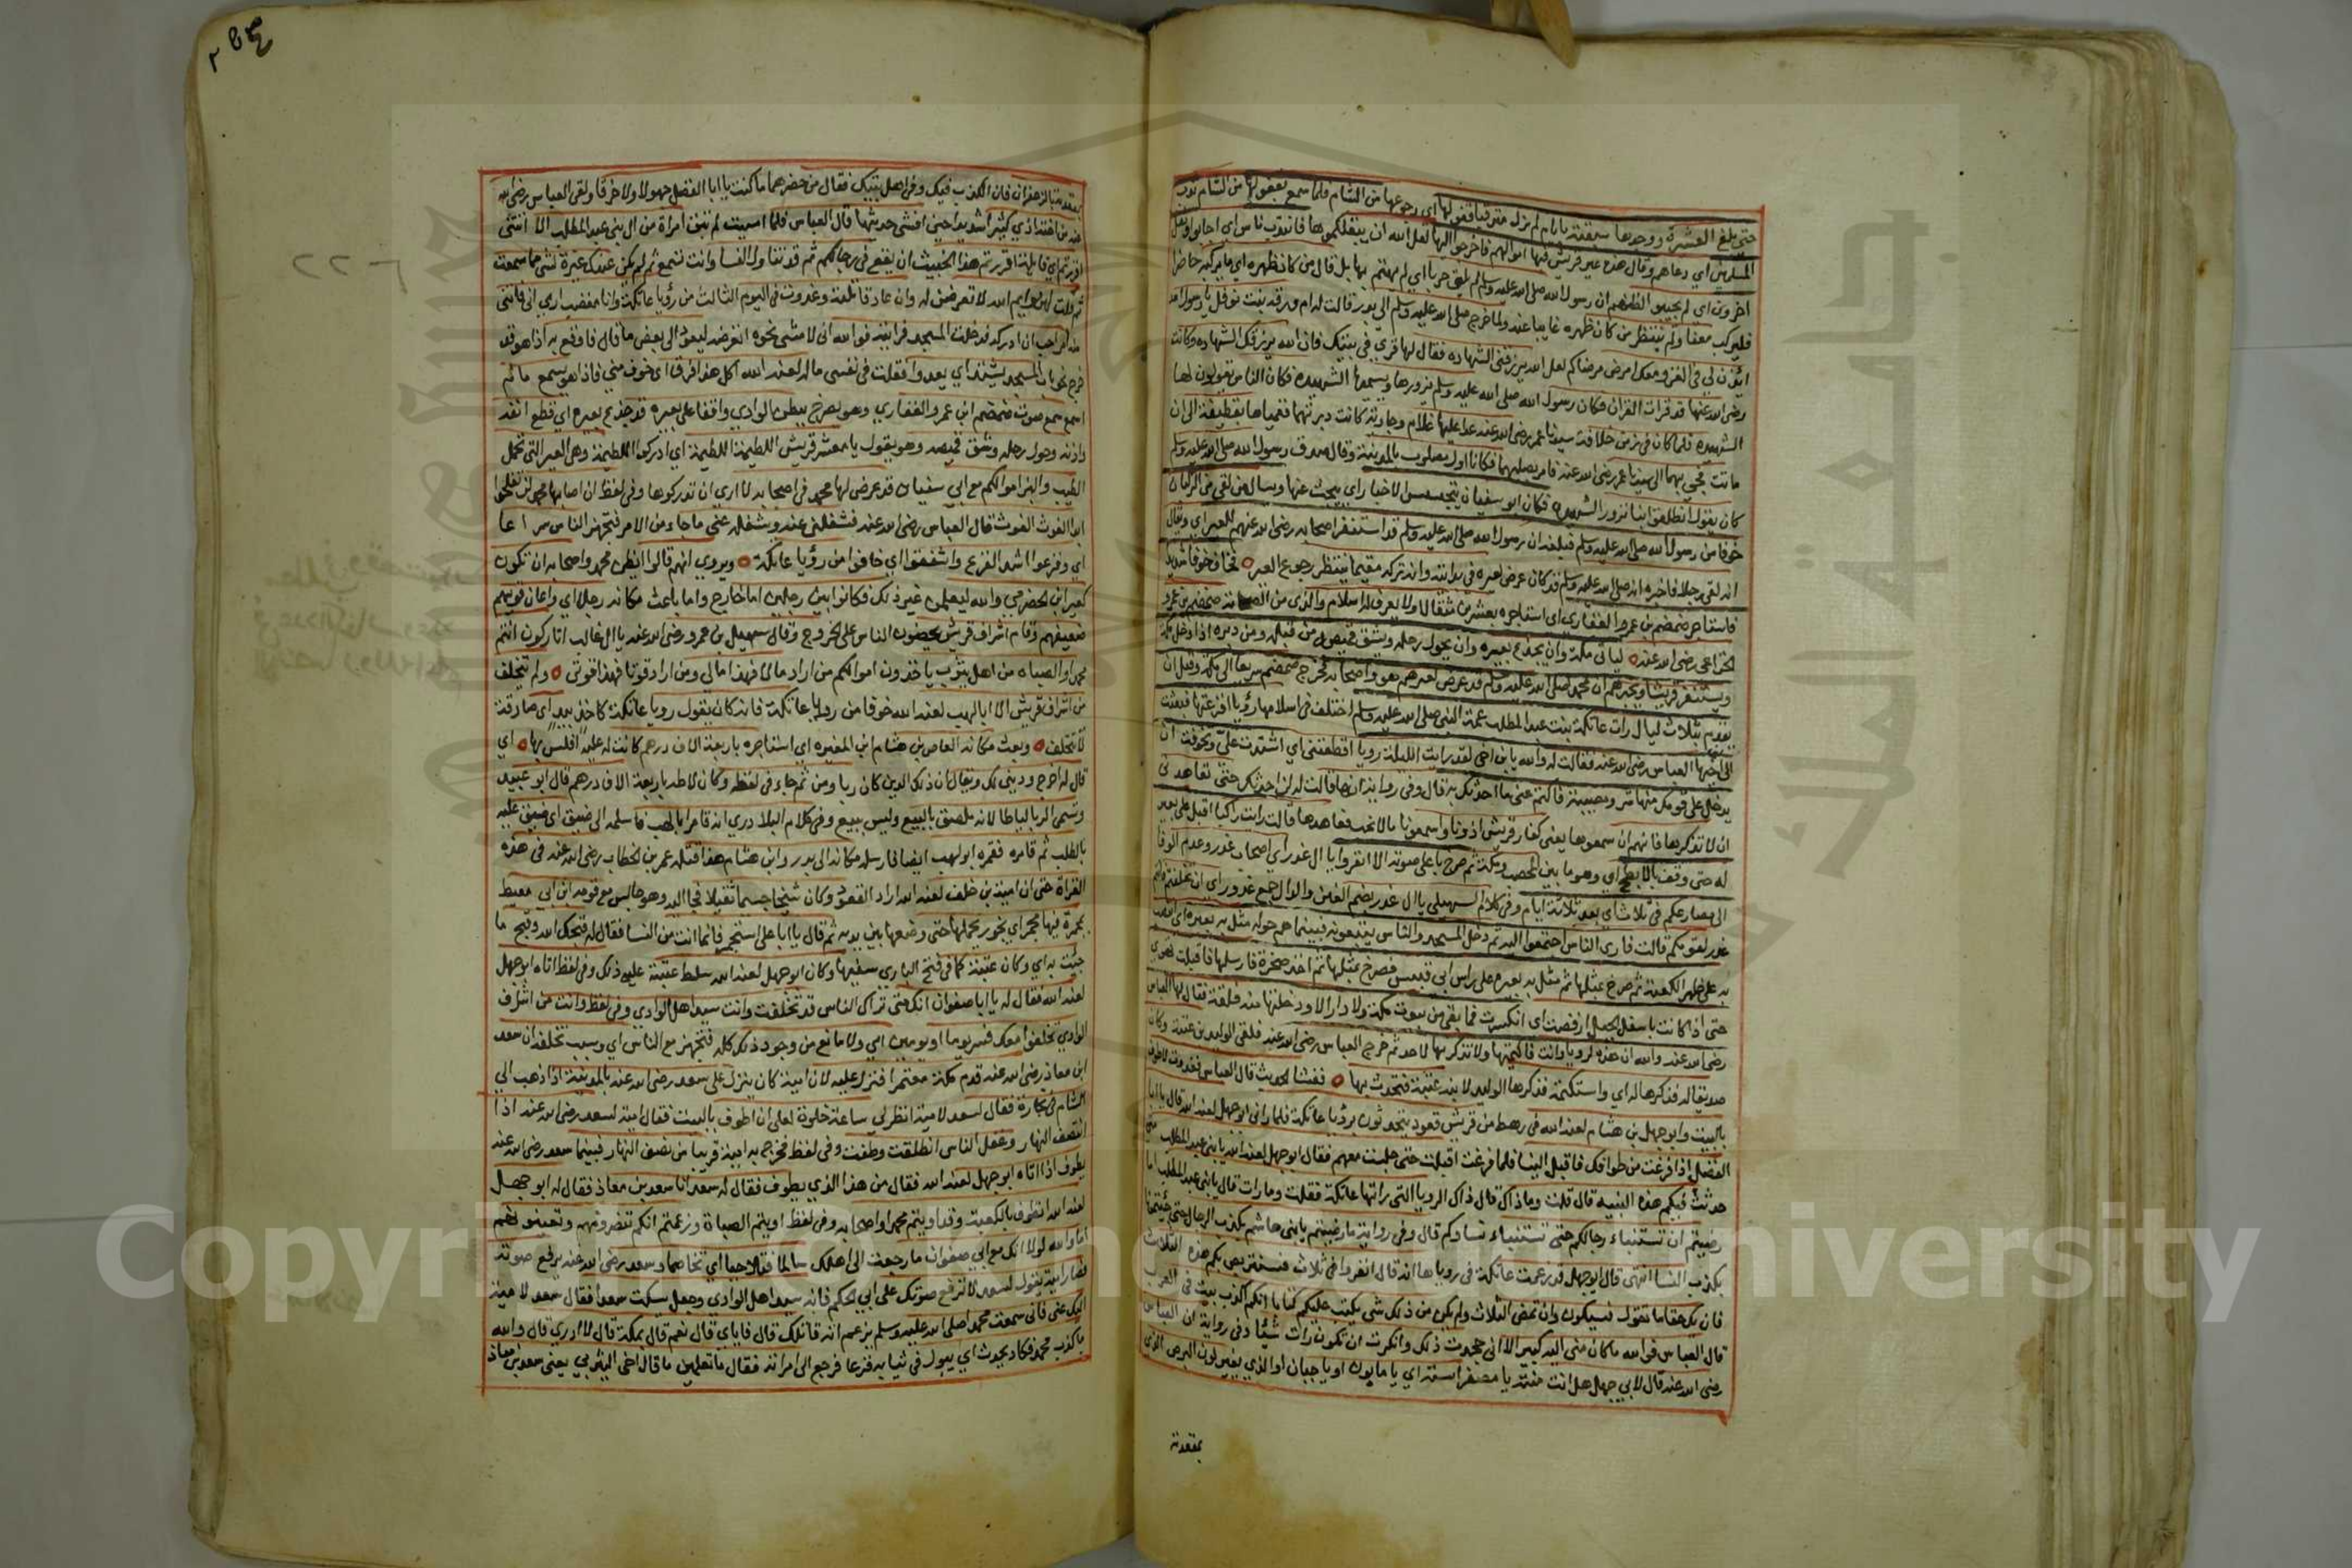 حتى بلغ العشيرة ووجدها سبقته بايام لم يزل مترقبا قفولها اي رجوعها من الشام فلما سمع بقفولها من الشام ندب
المسلمين اي دعاهم وقال هذه عير قريش فيها اموالهم فاخرجوا اليها لعل الله ان ينفلكموها فانتدب ناس اي اجابوا وثقل
اخرون اي لم يجيبوا لظنهم ان رسول الله صلى الله عليه وسلم لم يلق حربا اي لم يهتم بها بل قال من كان ظهره اي ما يركبه حاضرا
فليركب معنا ولم ينتظر من كان ظهره غايبا عنه ولما خرج صلى الله عليه وسلم الى بدر قالت له ام ورقه بنت نوفل يا رسول الله
ائذن لي في الغزو معك امرض مرضاكم لعل الله يرزقني الشهاده فقال لها قري في بيتك فان الله يرزقك الشهاده وكانت
رضي الله عنها قد قرات القران فكان رسول الله صلى الله عليه وسلم يزورها ويسميها الشهيده فكان الناس يقولون لها
الشهيده فلما كان في زمن خلافة سيدنا عمر رضي الله عنه عدا عليها غلام وجارية كانت دبرتهما فغمياها بقطيفة الى ان
ماتت فجي بهما الى سيدنا عمر رضي الله عنه فامر بصلبهما فكانا اول مصلوب بالمدينة وقال صدق رسول الله صلى الله عليه وسلم
كان يقول انطلقوا بنا نزور الشهيده فكان ابو سفيان يتجسس الاخبار اي يبحث عنها ويسال من لقي من الركبان
خوفا من رسول الله صلى الله عليه وسلم فبلغه ان رسول الله صلى الله عليه وسلم قد استنفر اصحابه رضي الله عنهم للعير اي ويقال
انه لقي رجلا فاخبره انه صلى الله عليه وسلم قد كان عرض لعيره في بدايته وانه تركه مقيما ينتظر رجوع العير فخاف خوفا شديدا
فاستاجر ضمضم بن عمرو الغفاري اي استاجره بعشرين مثقالا ولا يعرف له اسلام والذي من الصحابة ضمضم بن عمرو
الخزاعي رضي الله عنه لياتي مكة وان يجدع بعيره وان يحول رحله ويشق قميصه من قبله ومن دبره اذا دخل مكة
ويستنفر قريشا ويخبرهم ان محمدا صلى الله عليه وسلم قد عرض لعيرهم هو واصحابه فخرج ضمضم سريعا الى مكة وقبل ان
يقدم بثلاث ليال رات عاتكة بنت عبد المطلب عمة النبي صلى الله عليه وسلم اختلف في اسلامها رؤيا افزعتها فبعثت
الى اخيها العباس رضي الله عنه فقالت له والله يا ابن اخي لقد رايت الليلة رويا افظعتني اي اشتدت علي وتخوفت ان
يدخل على قومك منها شر ومصيبة فاكتم عني ما احدثك به قال وفي رواية انها قالت له لن احدثك حتى تعاهدني
ان لا تذكرها فانهم ان سمعوها يعني كفار قريش اذونا واسمعونا ما لا نحب فعاهدها قالت رايت راكبا اقبل على بعير
له حتى وقف بالابطح اي وهو ما بين المحصب ومكة ثم صرخ باعلى صوته الا انفروا يا ال غدر اي اصحاب غدر وعدم الوفا
الى مصارعكم في ثلاث اي بعد ثلاثة ايام وفي كلام السهيلي يا ال غدر بضم الغين والدال جمع غدور اي ان تخلفتم فانتم
غدر لقومكم قالت فارى الناس اجتمعوا اليه ثم دخل المسجد والناس يتبعونه فبينما هم حوله مثل به بعيره اي انتصب
به على ظهر الكعبة ثم صرخ بمثلها ثم مثل به بعيره على راس ابي قبيس فصرخ بمثلها ثم اخذ صخرة فارسلها فاقبلت تهوي
حتى اذا كانت باسفل الجبل ارفضت اي انكسرت فما بقي من بيوت مكة ولا دار الا ودخلتها منه فلقة فقال لها العباس
رضي الله عنه والله ان هذه لرويا وانت فاكتميها ولا تذكريها لاحد ثم خرج العباس رضي الله عنه فلقي الوليد بن عتبة وكان
صديقا له فذكرها له اي واستكتمه فذكرها الوليد لابنه عتبة فتحدث بها ففشا الحديث قال العباس فغدوت لاطوف
بالبيت وابو جهل بن هشام لعنه الله في رهط من قريش قعود يتحدثون برؤيا عاتكة فلما راني ابو جهل لعنه الله قال يا ابا
الفضل اذا فرغت من طوافك فاقبل الينا فلما فرغت اقبلت حتى جلست معهم فقال ابو جهل لعنه الله يا بني عبد المطلب متى
حدثت فيكم هذه النبيه قال قلت وما ذاك قال ذاك الرويا التي راتها عاتكة فقلت وما رات قال يا بني عبد المطلب اما
رضيتم ان تستنباء رجالكم حتى تستنباء نساوكم قال وفي رواية ما رضيتم يا بني هاشم بكذب الرجال حتى جئتمونا
بكذب النسا انتهى قال ابو جهل قد زعمت عاتكة في روياها انه قال انفروا في ثلاث فسنتربص بكم هذه الثلاث
فان يك حقا ما تقول فسيكون وان تمض الثلاث ولم يكن من ذلك شي نكتب عليكم كتابا انكم اكذب بيت في العرب
قال العباس فوالله ما كان مني اليه كبير الا اني جحدت ذلك وانكرت ان تكون رات شيئا وفي رواية ان العباس
رضي الله عنه قال لابي جهل هل انت منته يا مصفر استه اي يا مابون او يا جبان او الذي يغير لون البرص الذي
بمقعدته
بمقعدته بالزعفران فان الكذب فيك وفي اهل بيتك فقال من حضرهما ما كنت يا ابا الفضل جهولا ولا خرقا ولقي العباس رضي الله
عنه من اخته اذي كثيرا شديدا حين افشى حديثها قال العباس فلما امسيت لم تبق امراة من ال بني عبد المطلب الا اتتني
اقررتم اي قايلة اقررتم هذا الخبيث ان يقع في رجالكم ثم قد تناول النسا وانت تسمع ثم لم يكن عندك غيرة لشي مما سمعت
ثم قلت لهن وايم الله لاتعرضن له وان عاد قاتلته وغدوت في اليوم الثالث من رؤيا عاتكة وانا مغضب اري اني فاتني
منه امر احب ان ادركه فدخلت المسجد فرايته فوالله اني لامشي نحوه اتعرضه ليعود الى بعض ما قال فاوقع به اذا هو قد
خرج نحو باب المسجد يشتد اي يعدوا فقلت في نفسي ماله لعنه الله اكل هذا فرقا اي خوف مني فاذا هو يسمع ما لم
اسمع سمع صوت ضمضم ابن عمرو الغفاري وهو يصرخ ببطن الوادي واقفا على بعيره قد جذع بعيره اي قطع انفه
واذنه وحول رحله وشق قميصه وهو يقول يا معشر قريش اللطيمة اللطيمة اي ادركوا اللطيمة وهي العير التي تحمل
الطيب والبز اموالكم مع ابي سفيان قد عرض لها محمد في اصحابه لا ارى ان تدركوها وفي لفظ ان اصابها محمد لن تفلحوا
ابدا الغوث الغوث قال العباس رضي الله عنه فشغلني عنه وشغله عني ما جاء من الامر فتجهز الناس سراعا
اي وفزعوا اشد الفزع واشفقوا اي خافوا من رؤيا عاتكة ويروي انهم قالوا ايظن محمد واصحابه ان تكون
كعير ابن الحضرمي والله ليعلمن غير ذلك فكانوا بين رجلين اما خارج واما باعث مكانه رجلا اي واعان قويهم
ضعيفهم وقام اشراف قريش يحضون الناس على الخروج وقال سهيل بن عمرو رضي الله عنه يا ال غالب اتاركون انتم
محمدا والصباه من اهل يثرب ياخذون اموالكم من اراد مالا فهذا مالي ومن اراد قوتا فهذا قوتي ولم يتخلف
من اشراف قريش الا ابا لهب لعنه الله خوفا من رويا عاتكة فانه كان يقول رويا عاتكة كاخذ بيد اي صادقة
لا تتخلف وبعث مكانه العاص بن هشام ابن المغيره اي استاجره باربعة الاف درهم كانت له عليه افلس بها اي
قال له اخرج وديني لك ويقال ان ذلك الدين كان ربا ومن ثم جاء في لفظه وكان لاطه باربعة الاف درهم قال ابو عبيد
وسمي الربا لياطا لانه ملصق بالبيع وليس ببيع وفي كلام البلاذري انه قامر ابا لهب فاسلمه الى ضيق اي ضيق عليه
بالطلب ثم قامره فقمره ابو لهب ايضا فارسله مكانه الى بدر وابن هشام هذا قتله عمر بن الخطاب رضي الله عنه في هذه
الغزاة حتى ان امية بن خلف لعنه الله اراد القعود وكان شيخا جسيما ثقيلا فجا اليه وهو جالس مع قومه ابن ابي معيط
بمجمرة فيها مجمر اي بخور يحملها حتى وضعها بين يديه ثم قال يا ابا علي استجمر فانما انت من النسا فقال له قبحك الله وقبح ما
جئت به اي وكان عتبة كما في فتح الباري سفيها وكان ابو جهل لعنه الله سلط عتبة عليه ذلك وفي لفظ اتاه ابو جهل
لعنه الله فقال له يا ابا صفوان انك متى تراك الناس قد تخلفت وانت سيد اهل الوادي وفي لفظ وانت من اشراف
الوادي تخلفوا معك فسر يوما او يومين اي ولا مانع من وجود ذلك كله فتجهز مع الناس اي وسبب تخلفه ان سعد
ابن معاذ رضي الله عنه قدم مكة معتمرا فنزل عليه لان امية كان ينزل على سعد رضي الله عنه بالمدينة اذا ذهب الى
الشام في تجارة فقال سعد لامية انظر لي ساعة خلوة لعلي ان اطوف بالبيت فقال امية لسعد رضي الله عنه اذا
انتصف النهار وغفل الناس انطلقت وطفت وفي لفظ فخرج به امية قريبا من نصف النهار فبينما سعد رضي الله عنه
يطوف اذا اتاه ابو جهل لعنه الله فقال من هذا الذي يطوف فقال له سعد انا سعد بن معاذ فقال له ابو جهل
لعنه الله اتطوف بالكعبة وقد اويتم محمدا واصحابه وفي لفظ اويتم الصباة وزعمتم انكم تنصرونهم وتعينونهم
اما والله لولا انك مع ابي صفوان ما رجعت الى اهلك سالما فتلاحيا اي تخاصما وسعد رضي الله عنه يرفع صوته
فصار امية يقول لسعد لا ترفع صوتك على ابي الحكم فانه سيد اهل الوادي وجعل يسكت سعدا فقال سعد لامية
اليك عني فاني سمعت محمدا صلى الله عليه وسلم يزعم انه قاتلك قال اياي قال نعم قال بمكة قال لا ادري قال والله
ما كذب محمد فكاد يحدث اي يبول في ثيابه فزعا فرجع الى امراته فقال ما تعلمين ما قال اخي اليثربي يعني سعد بن معاذ